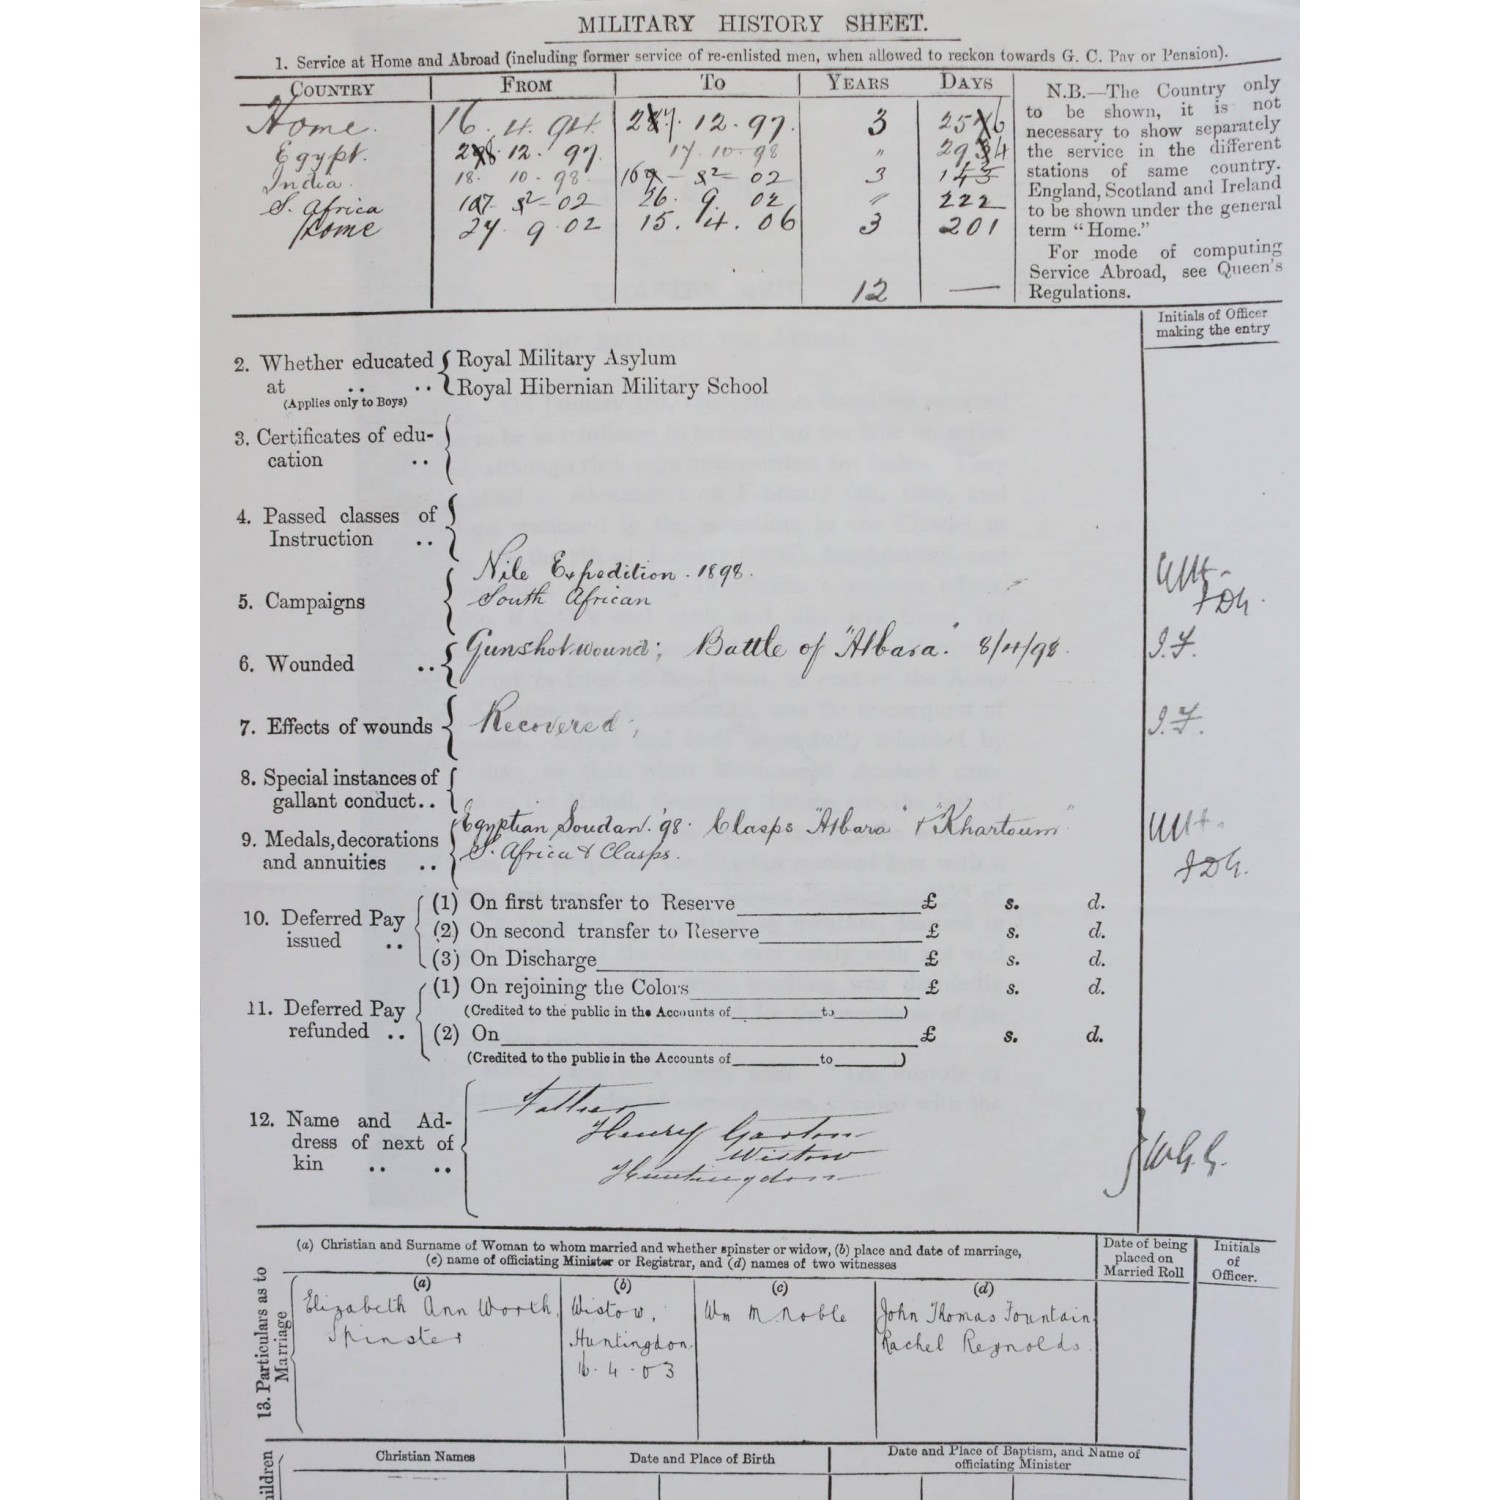 MILITARY HISTORY SHEET.
1. Service at Home and Abroad (including former service of re-enlisted men, when allowed to reckon towards G. C. Pay or Pension).
COUNTRY FROM TO YEARS DAYS
Home. 16. 4. 94. 27. 12. 97. 3 256
Egypt. 28. 12. 97. 17. 10. 98 " 294
India. 18. 10. 98. 16 - 2 - 02 3
S. Africa 17 - 2 - 02 26. 9. 02 " 222
Home 27. 9. 02 15. 4. 06 3 201
12 —
N.B.—The Country only
to be shown, it is not
necessary to show separately
the service in the different
stations of same country.
England, Scotland and Ireland
to be shown under the general
term "Home."
For mode of computing
Service Abroad, see Queen's
Regulations.
Initials of Officer
making the entry
2. Whether educated { Royal Military Asylum
at .. .. { Royal Hibernian Military School
(Applies only to Boys)
3. Certificates of edu-
cation ..
4. Passed classes of
Instruction ..
Nile Expedition. 1898.
5. Campaigns South African
6. Wounded .. Gunshot wound; Battle of "Atbara." 8/4/98. J.F.
7. Effects of wounds Recovered; J.F.
8. Special instances of
gallant conduct..
9. Medals, decorations Egyptian Soudan. '98. Clasps "Atbara" & "Khartoum"
and annuities .. S. Africa & Clasps.
10. Deferred Pay issued ..
(1) On first transfer to Reserve £ s. d.
(2) On second transfer to Reserve £ s. d.
(3) On Discharge £ s. d.
11. Deferred Pay refunded ..
(1) On rejoining the Colors £ s. d.
(Credited to the public in the Accounts of to )
(2) On £ s. d.
(Credited to the public in the Accounts of to )
12. Name and Ad-
dress of next of
kin .. ..
Father
Henry Gaston
Wistow
Huntingdon
W.G.G.
13. Particulars as to
Marriage
(a) Christian and Surname of Woman to whom married and whether spinster or widow, (b) place and date of marriage,
(c) name of officiating Minister or Registrar, and (d) names of two witnesses
Date of being
placed on
Married Roll
Initials
of
Officer.
(a) (b) (c) (d)
Elizabeth Ann Worth. Wistow, Wm M. Noble John Thomas Fountain
Spinster Huntingdon. Rachel Reynolds.
16. 4. 03
Christian Names Date and Place of Birth Date and Place of Baptism, and Name of
officiating Minister